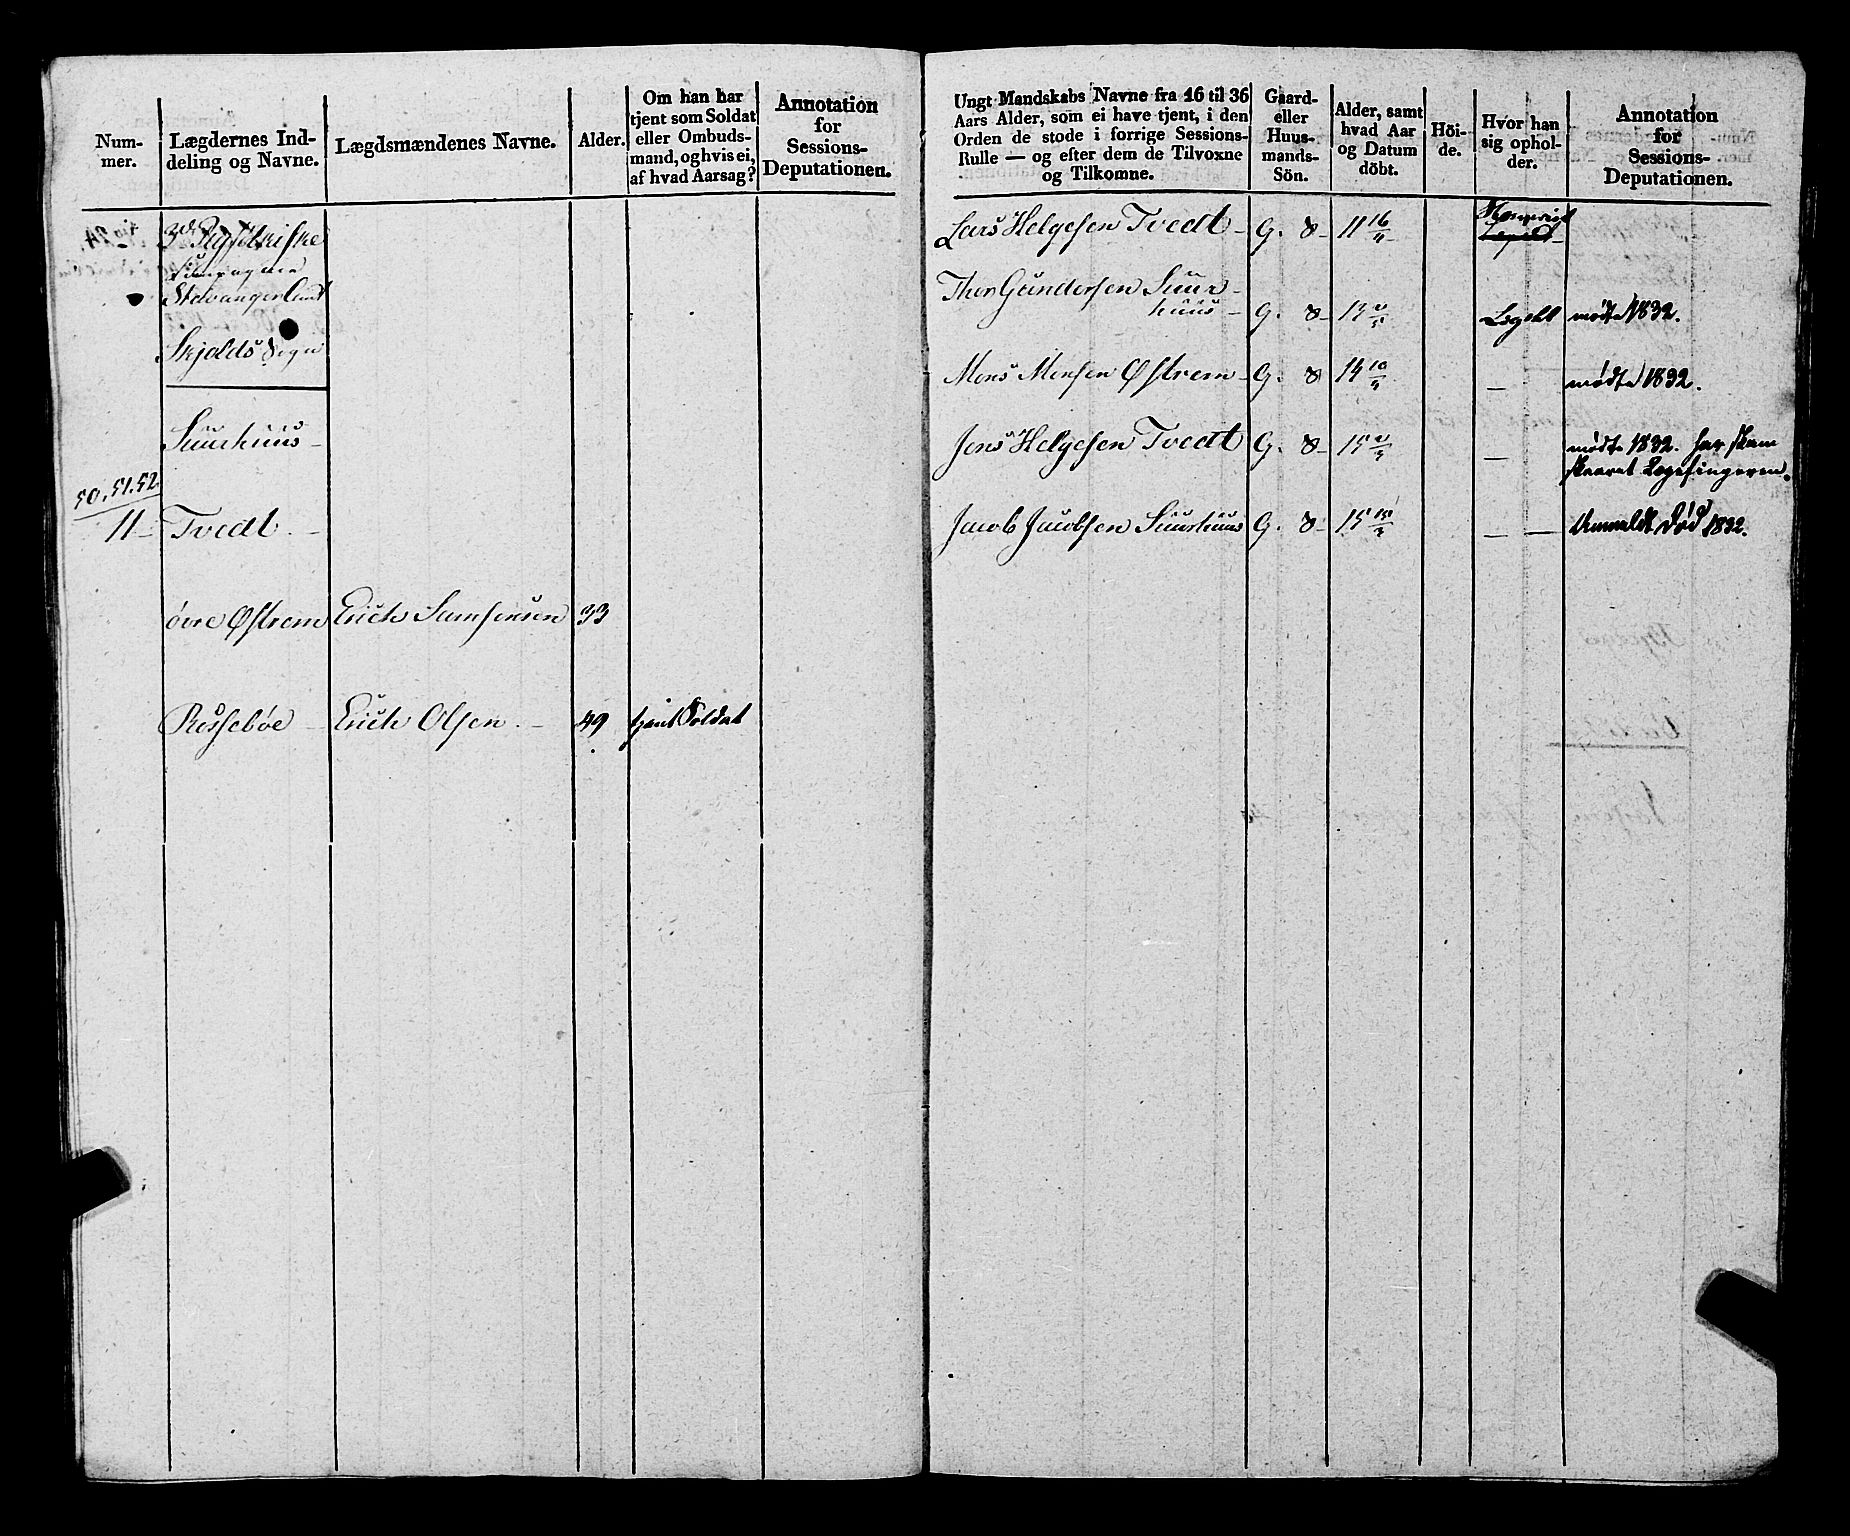 Num-
mer.
Lægdernes Ind-
deling og Navne.
Lægdsmændenes Navne.
Alder.
Om han har
tjent som Soldat
eller Ombuds-
mand, og hvis ei,
af hvad Aarsag?
Annotation
for
Sessions-
Deputationen.
3d Ryfylkiske
Compagnie
Stavanger Amt
Skjolds Sogn
Suurhuus -
50. 51. 52
11 - Tvedt. -
övre Østrem Erich Samsonsen 33
Rossebøe - Erich Olsen. - 49 tjent Soldat
Ungt Mandskabs Navne fra 16 til 36
Aars Alder, som ei have tjent, i den
Orden de stode i forrige Sessions-
Rulle — og efter dem de Tilvoxne
og Tilkomne.
Gaard-
eller
Huus-
mands-
Sön.
Alder, samt
hvad Aar
og Datum
döbt.
Höi-
de.
Hvor han
sig ophol-
der.
Annotation
for
Sessions-
Deputationen.
Lars Helgesen Tvedt - G. 8 - 11 16/11 Legdet -
Thor Gundersen Suur-
huus - G. 8 - 13 Legdet mødte 1832.
Mons Monsen Østrem - G. 8 14 — mødte 1832.
Jens Helgesen Tvedt G. 8 - 15 — mødte 1832. har skam
skaaret Pegefingeren.
Jacob Jacobsen Suurhuus G. 8 - 15 — — Anmeldt Død 1832.